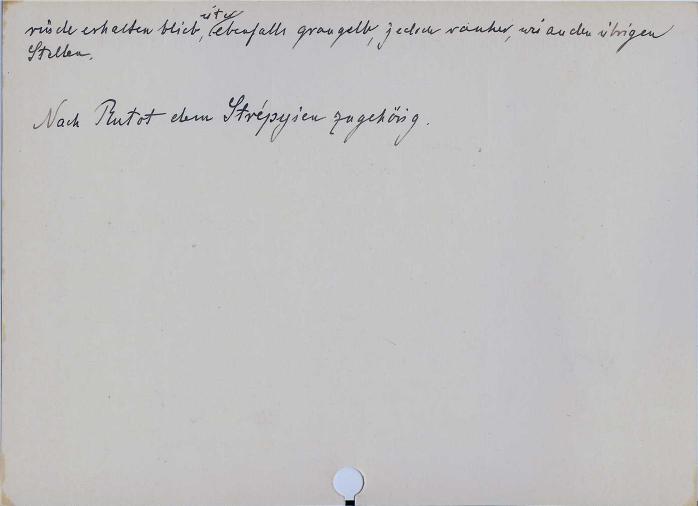 rinde erhalten blieb, ist ebenfalls graugelb, jedoch rauher, wie an den übrigen
Stellen.
Nach Rutot dem Strépyien zugehörig.